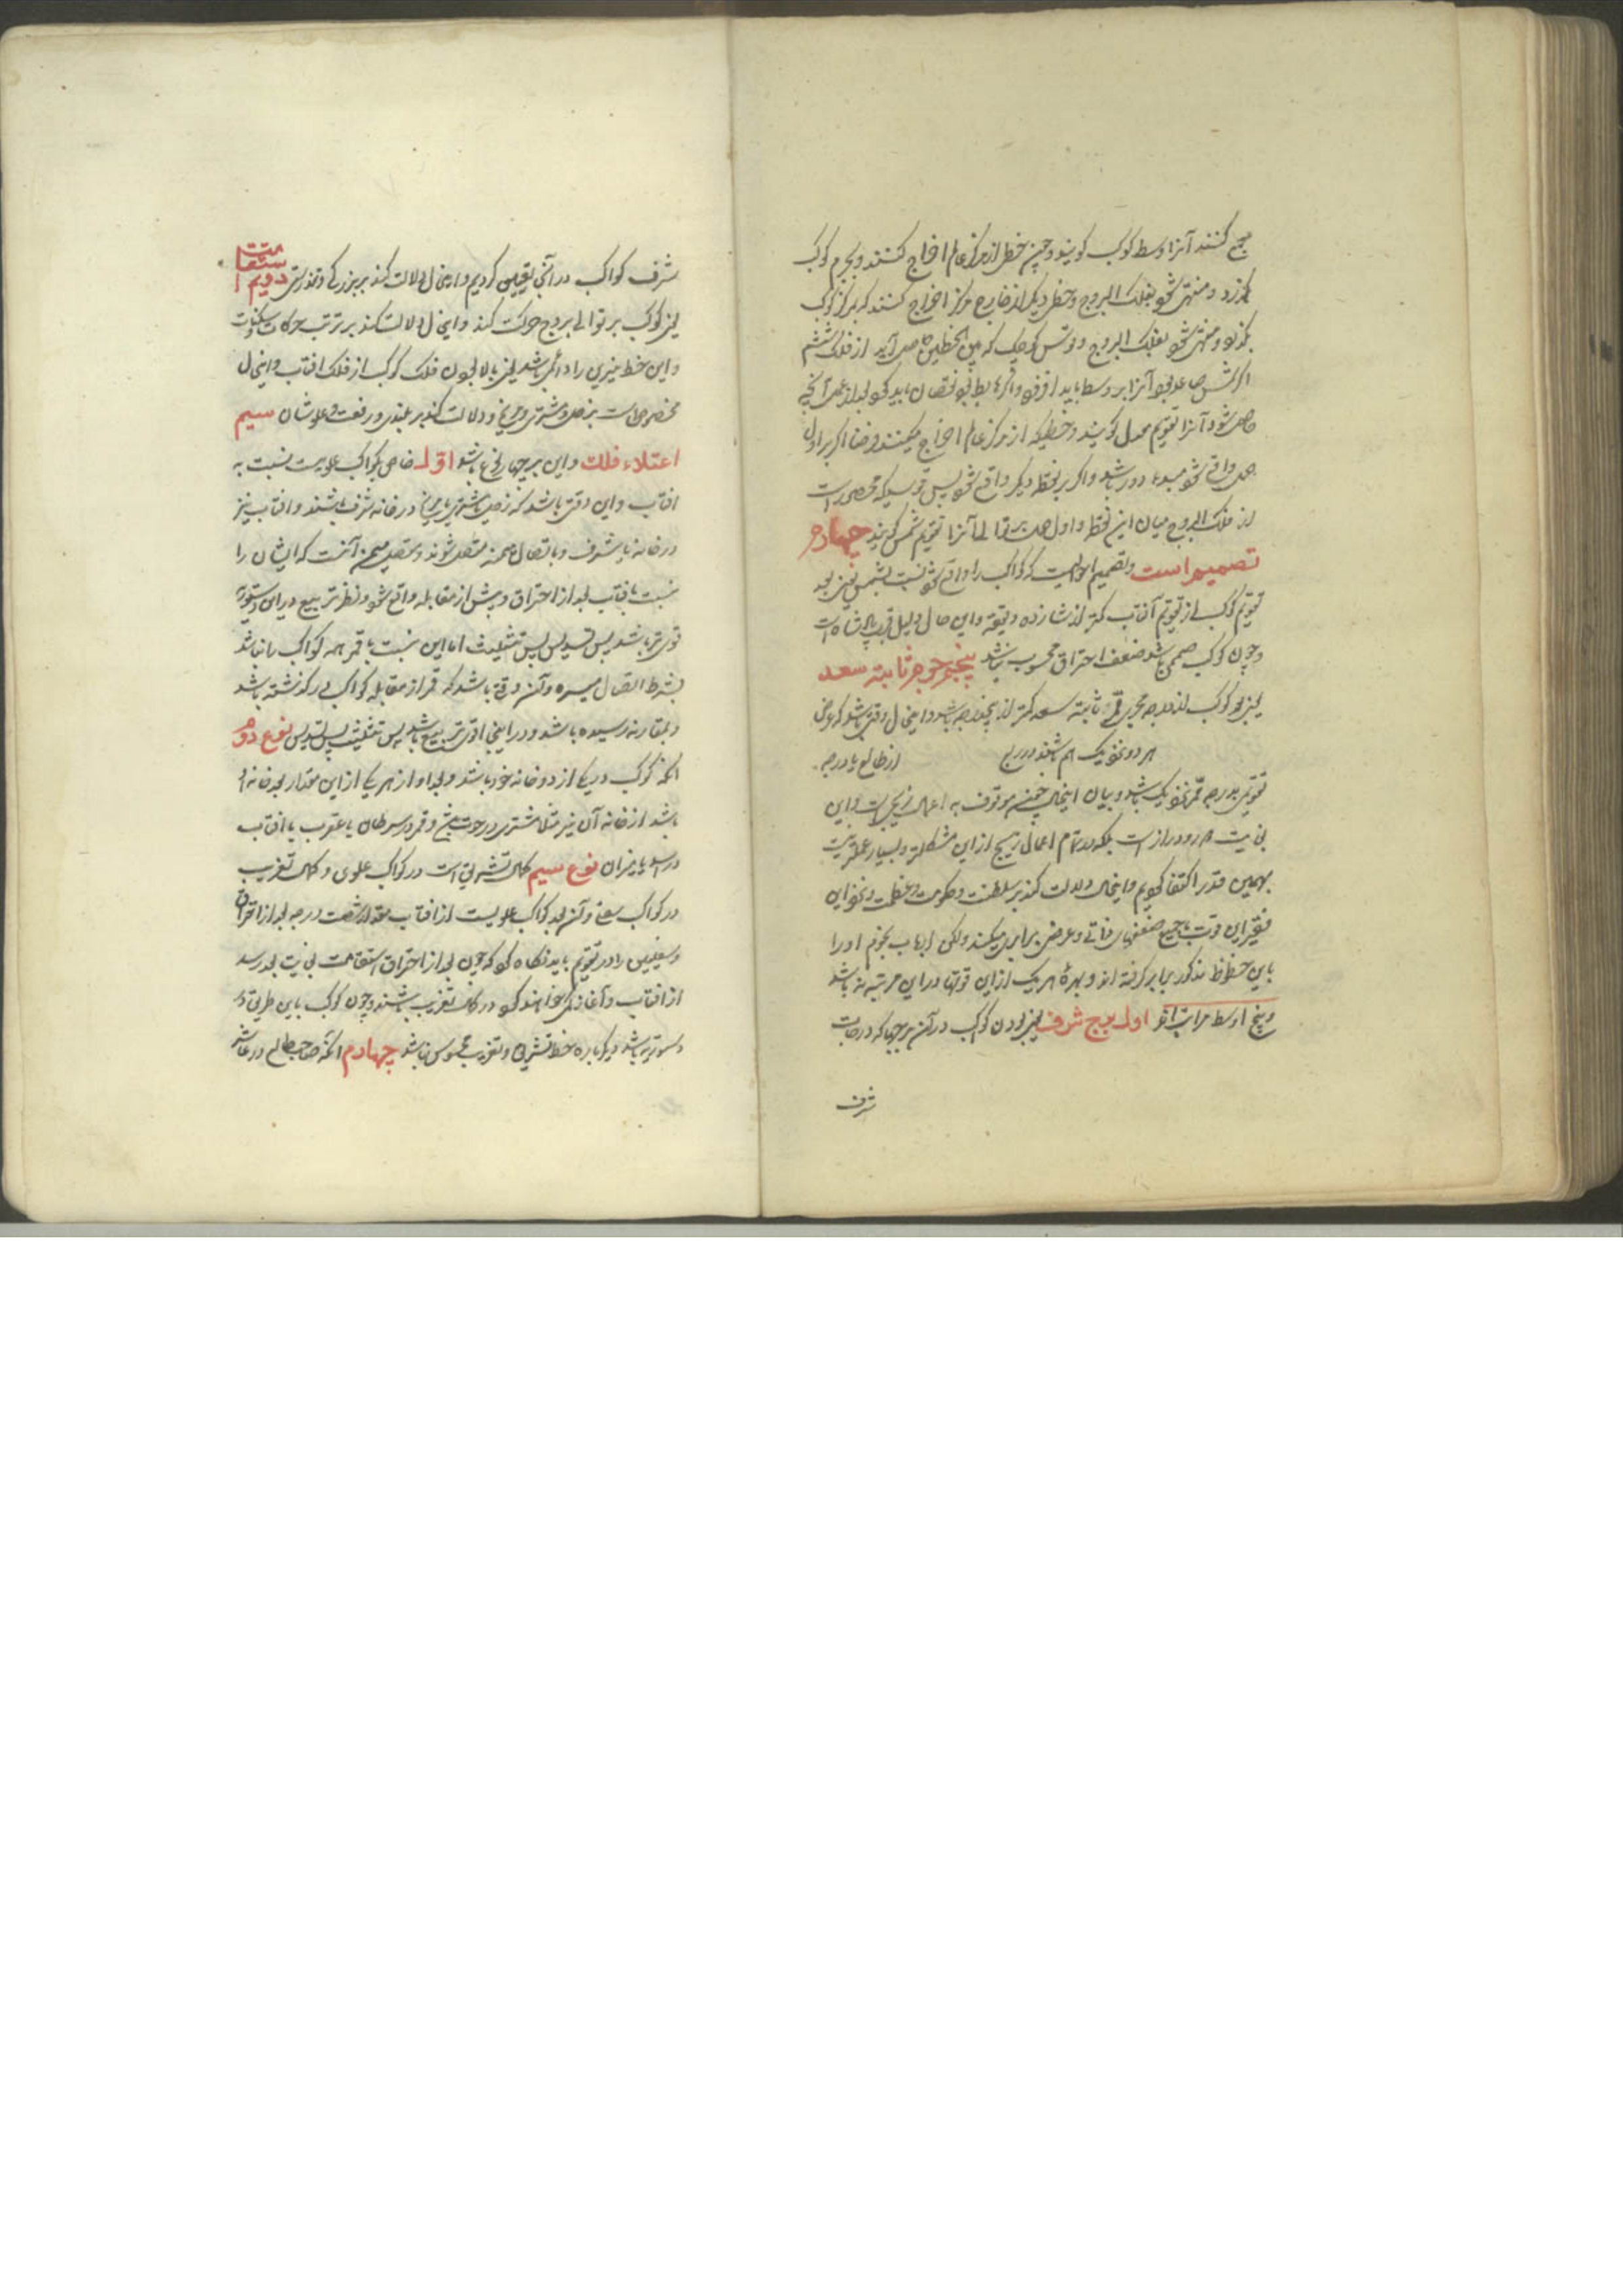 جمع کنند آنرا وسط کوکب کویند و چون خطی از مرکز عالم اخراج کنند و بجرم کوکب
بگذرد و منتهی شود بفلک البروج و خطی دیگر از خارج مرکز اخراج کنند که بمرکز کوکب
بگذرد و منتهی شود بفلک البروج و قوس کوچک که بین الخطین حاصل آید از فلک
اگر صاعد بود آنرا بر وسط باید افزود و اگر هابط بود نقصان باید کرد بعد از عمل آنچه
حاصل شود آنرا تقویم معدل کویند و خطیکه از مرکز عالم اخراج میکنند اگر بر اول
حمل واقع شود مبدء دور باشد و اگر بر نقطه دیگر واقع شود پس قوسیکه محصور است
از فلک البروج میان این نقطه و اول حمل بر توالی آنرا تقویم شمس کویند چهارم
تصمیم است و تصمیم حالیست که کواکب را واقع شود نسبت بشمس یعنی بعد
تقویم کوکب از تقویم آفتاب کمتر از شانزده دقیقه و این حال دلیل قرب پادشاه است
و چون کوکب صمیمی باشد ضعف احتراق محسوب نباشد پنجم ثابته سعد
یعنی بعد کوکب از درجه ممر ثابته سعد کمتر از پنج درجه باشد و این حال وقتی باشد که عرض
هر دو نزدیک هم باشند در ربع از طالع یا درجه
تقویم بدرجه ممر نزدیک باشد و بیان این موقوف به اعمال زیجیست و این
بغایت دور و دراز است بلکه در تمام اعمال زیج ازین مشکلتر و بسیار عملتر نیست
بهمین قدر اکتفا کردیم و این حال دلالت کند بر سلطنت و حکومت و عظمت و نحو این
فقیر این قوت با جمیع ضعفهای ذاتی و عرضی برابر میکند ولکن ارباب نجوم او را
باین حظوظ مذکور برابر گرفته اند و بهره هر یک از این قوتها در این مرتبه نه باشد
و پنج اوسط مراتب اول برج شرف یعنی بودن کواکب در آن برجها که درجات
شرف
شرف کواکب در آنجا تعیین کردیم و این حال دلالت کند بر بزرگی و تندرستی دویم استقامت
یعنی کوکب بر توالی بروج حرکت کند و این حال دلالت کند بر ترتیب حرکات و سکنات
و این خط نیرین را دائمی باشد یعنی بالا بودن فلک کوکب از فلک آفتاب و این حال
مخصوص است بزحل و مشتری و مریخ و دلالت کند بر بلندی و رفعت و علو شان سیم
اعتلاء فلک و این بر چهار نوع باشد اول خاص بکواکب علویست نسبت به
افتاب و این وقتی باشد که زحل یا مشتری یا مریخ در خانه شرف باشند و افتاب نیز
در خانه یا شرف و باتصال میمنه متصل شوند و متصل میمنه آنست که ایشان را
نسبت بافتاب بعد از احتراق و پیش از مقابله واقع شود و نظر تربیع در این دستوریه
قوی تر باشد پس تسدیس پس تثلیث اما این نسبت با قمر همه کواکب را باشد
بشرط اتصال میسره و آن وقتی باشد که قمر از مقابله کواکب در گذشته باشد
و بمقارنه رسیده باشد و در اینجا اقوی تربیع باشد پس تثلیث پس تسدیس نوع دوم
انکه کوکب در یکی از دو خانه خود باشد و بعد او از هر یکی از این مقدار بعد خانه او
باشد از خانه آن نیر مثلا مشتری در حوت و قمر در سرطان یا عقرب یا افتاب
در اسد یا میزان نوع سیم کمال تشریق است در کواکب علوی و کمال تغریب
در کواکب سفلی و آن بعد کواکب علویست از افتاب بمقدار شصت درجه بعد از احتراق
و سفلیین را در تقویم باید نگاه کرد که چون بعد از احتراق استقامت بغایت بعد رسد
از افتاب و آغاز کمی خواهند کرد در کمال تغریب باشند و چون کوکب باین طریق در
دستوریه باشد دیگر باره خط تشریق و تغریب محسوس نباشد چهارم انکه صاحب طالع در عاشر